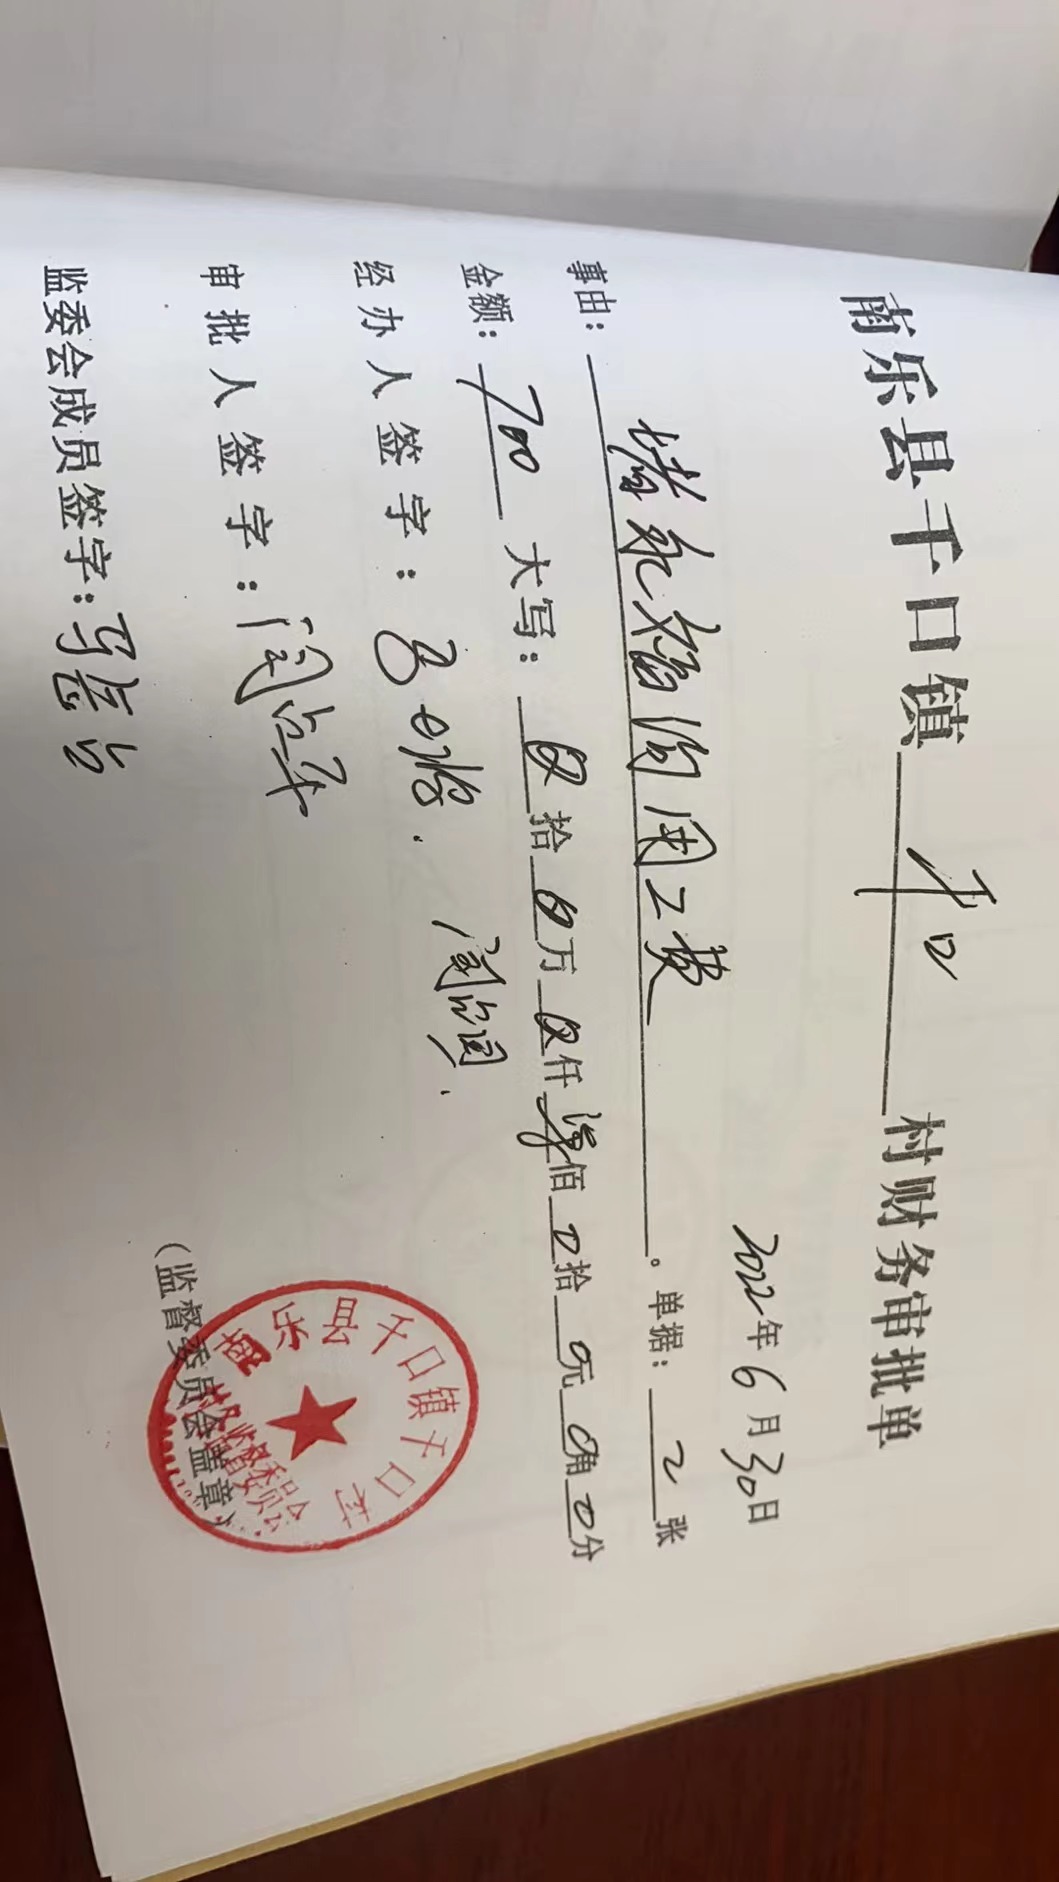 南乐县千口镇 千口 村财务审批单
2022年6月30日
事由: 用工费 。单据: 2 张
金额: 700 大写: 拾 万 仟 柒佰 0拾 0元 0角 0分
经办人签字:
审批人签字: 闫
监委会成员签字:
(监督委员会盖章)
南乐县千口镇千口村
村务监督委员会